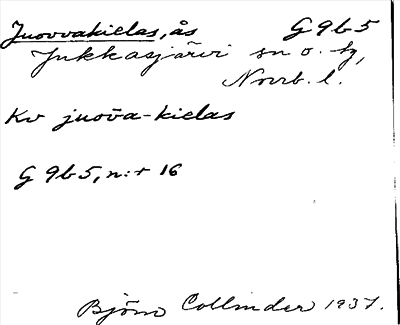 Juovvakielas, ås G9b5
Jukkasjärvi sn o. tg,
Norrb. l.
Kv juova-kielas
G 9b5, n:r 16
Björn Collinder 1937.